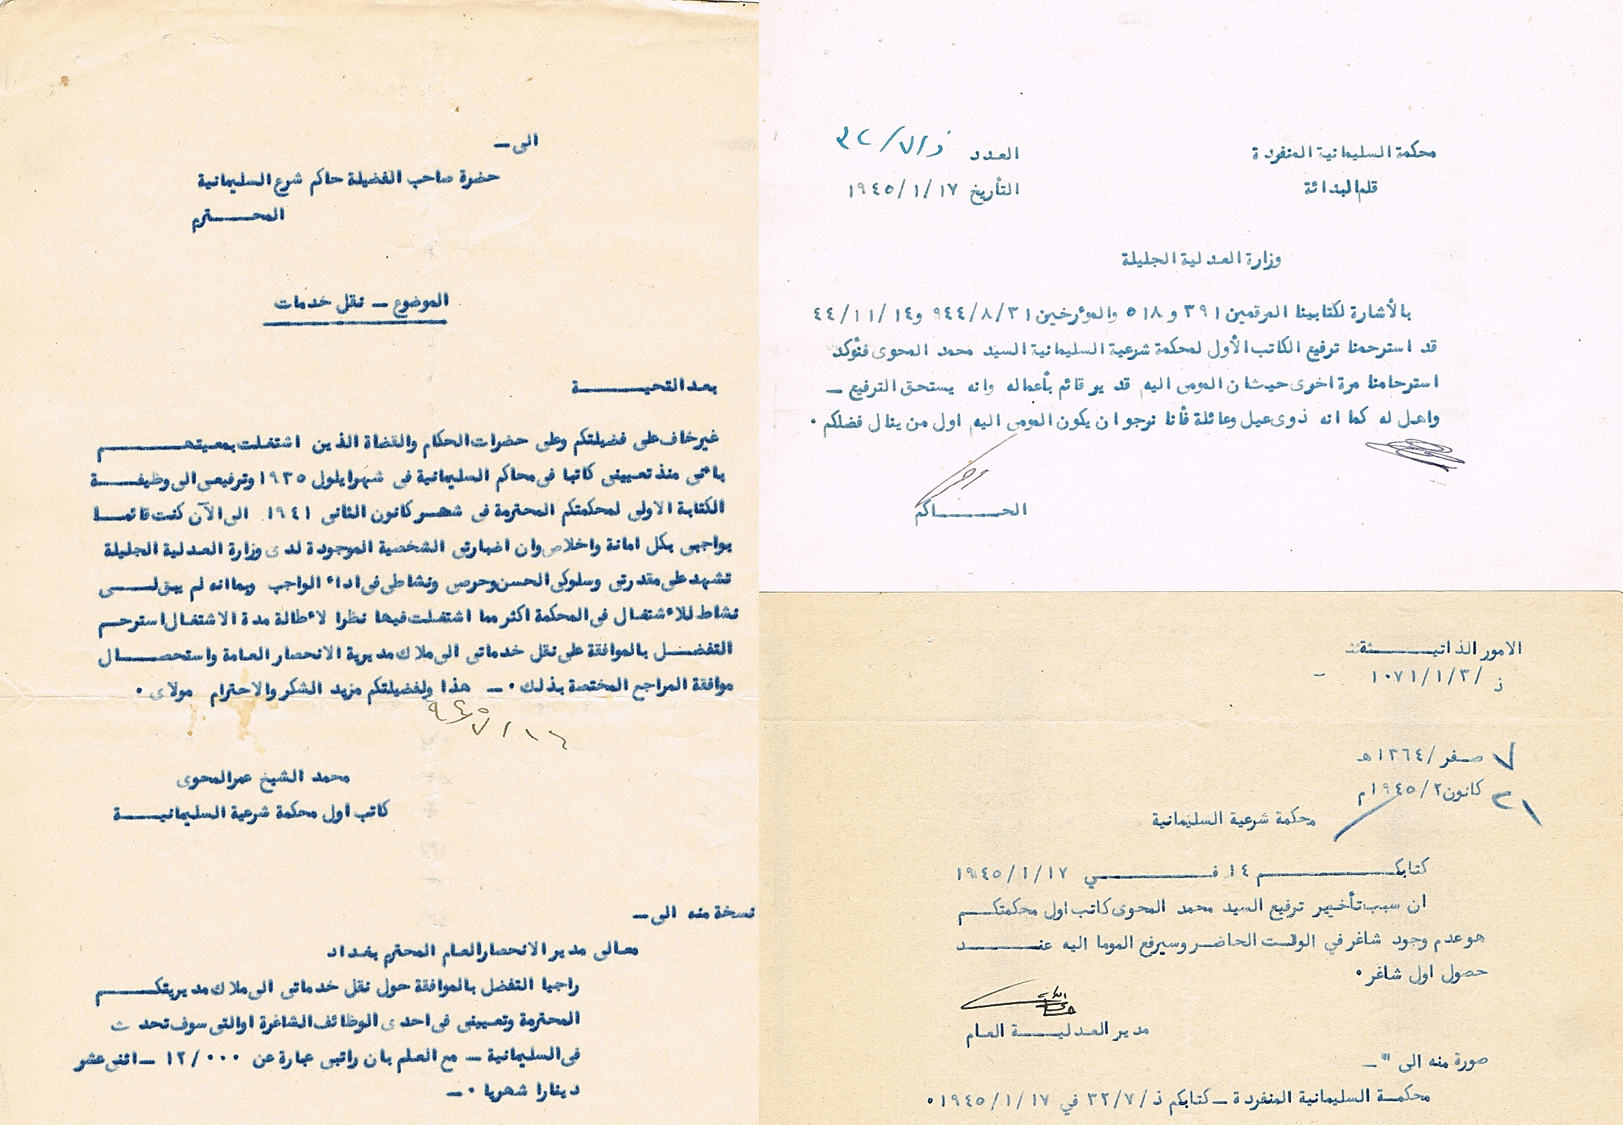 الى ــ
حضرة صاحب الفضيلة حاكم شرع السليمانية
المحـــترم
الموضوع ــ نقل خدمات
بعد التحيـــــــة
غير خاف على فضيلتكم وعلى حضرات الحكام والقضاة الذين اشتغلت بمعيتهـــــم
بأنى منذ تعيينى كاتبا فى محاكم السليمانية فى شهر ايلول ١٩٣٥ وترفيعى الى وظيفـــة
الكتابة الاولى لمحكمتكم المحترمة فى شهـر كانون الثانى ١٩٤١ الى الآن كنت قائمـــا
بواجبى بكل امانة واخلاص وان اضبارتى الشخصية الموجودة لدى وزارة العدلية الجليلة
تشهد على مقدرتى وسلوكى الحسن وحرصى ونشاطى فى اداء الواجب وبما انه لم يبق لـــى
نشاط للاشتغال فى المحكمة اكثر مما اشتغلت فيها نظرا لاطالة مدة الاشتغال استرحـــم
التفضــل بالموافقة على نقل خدماتى الى ملاك مديرية الانحصار العامة واستحصــــال
موافقة المراجع المختصة بذلك ٠ــ هذا ولفضيلتكم مزيد الشكر والاحترام مولاى ٠
محمد الشيخ عمر المحوى
كاتب اول محكمة شرعية السليمانيـــة
نسخة منه الى ــ
معالى مدير الانحصار العام المحترم بغداد
راجيا التفضل بالموافقة حول نقل خدماتى الى ملاك مديريتكـــــم
المحترمة وتعيينى فى احدى الوظائف الشاغرة او التى سوف تحدث
فى السليمانية ــ مع العلم بان راتبى عبارة عن ١٢/٠٠٠ ــ اثنى عشر
دينارا شهريا ٠ــ
محكمة السليمانية المنفردة
قلم البدائة
العدد ذ/٧/٣٢
التأريخ ١٩٤٥/١/١٧
وزارة العدلية الجليلة
بالأشارة لكتابينا المرقمين ٣٩١ و ٥١٨ والمؤرخين ٩٤٤/٨/٣١ و ٤٤/١١/١٤
قد استرحمنا ترفيع الكاتب الأول لمحكمة شرعية السليمانية السيد محمد المحوى فنؤكد
استرحامنا مرة اخرى حيث ان المومى اليه قدير قائم بأعماله وانه يستحق الترفيع ــ
واهل له كما انه ذوى عيل وعائلة فأنا نرجو ان يكون المومى اليه اول من ينال فضلكم ٠
الحـــــاكم
الامور الذاتيـــــة
ذ /١٠٧١/١/٣ ــ
٧ صفر /١٣٦٤هـ
٢١ كانون٢/ ١٩٤٥م
محكمة شرعية السليمانية
كتابكـــــــم ١٤ فـــــــي ١٩٤٥/١/١٧
ان سبب تأخير ترفيع السيد محمد المحوى كاتب اول محكمتكـــم
هو عدم وجود شاغر في الوقت الحاضر وسيرفع الموما اليه عنـــــد
حصول اول شاغر ٠
مدير العدليـــــة العام
صورة منه الى "ــ
محكمـة السليمانية المنفردة ــ كتابكم ذ/٣٢/٧ في ١٩٤٥/١/١٧ ٠